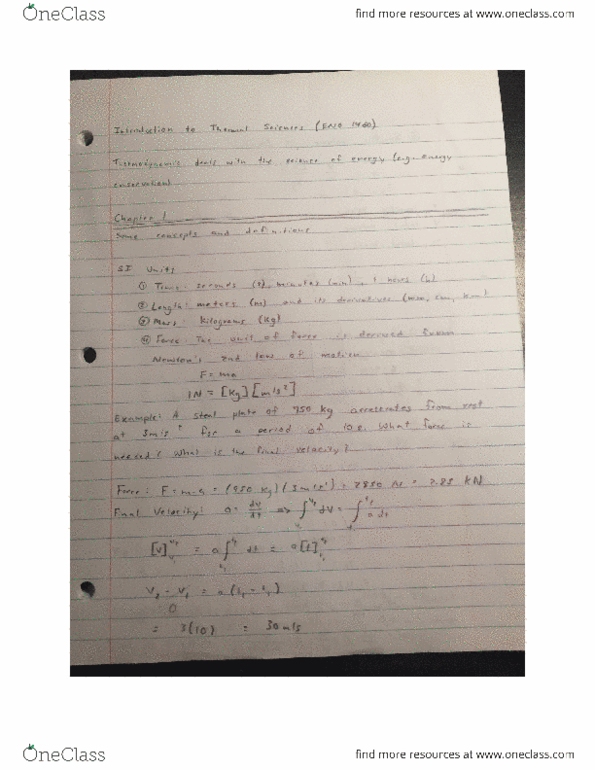 OneClass
find more resources at www.oneclass.com
Introduction to Thermal Sciences (ENG 1460)
Thermodynamic deals with the science of energy (e.g. Energy
conservation)
Chapter 1
Some concepts and definitions
SI Units
① Time: seconds (s), minutes (min), hours (h)
② Length: meters (m) and its derivatives (mm, cm, km)
③ Mass: Kilograms (Kg)
④ Force: The unit of force is derived from
Newton's 2nd law of motion
F = ma
1N = [Kg][m/s²]
Example: A steel plate of 950 kg accelerates from rest
at 3m/s² for a period of 10s. What force is
needed? What is the final velocity?
Force: F = m·a = (950 Kg)(3m/s²) = 2850 N = 2.85 KN
Final Velocity: a = dv/dt => ∫ dV = ∫ a dt
[V] = a ∫ dt = a[t]
V₂ - V₁ = a(t₂ - t₁)
0
= 3(10) = 30 m/s
OneClass
find more resources at www.oneclass.com